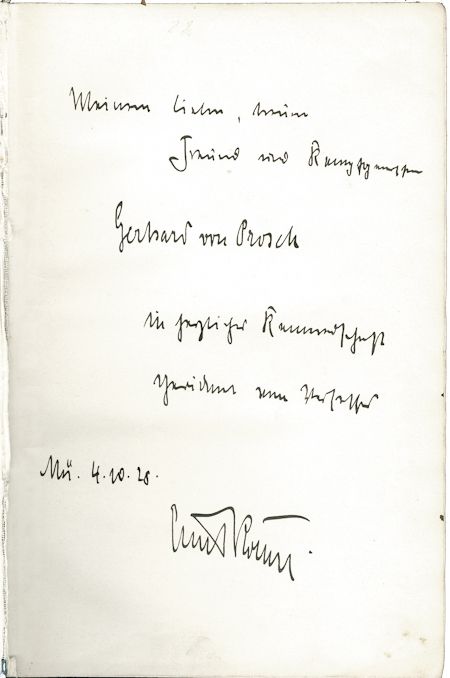 Meinem lieben, treuen
Freund und Kampfgenossen
Gerhard von Prosch
in herzlicher Kameradschaft
gewidmet vom Verfasser
Mü. 4.10.28.
Ernst Röhm.